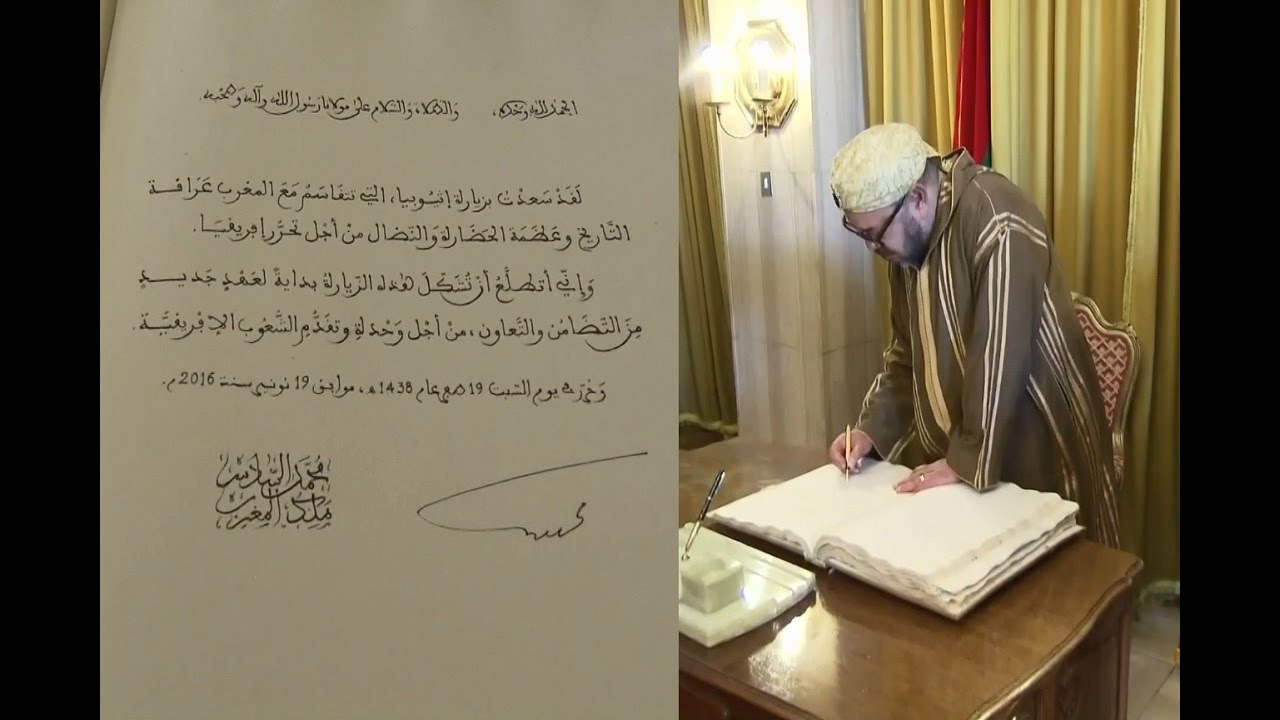 الحمد لله وحده، والصلاة والسلام على مولانا رسول الله وآله وصحبه.
لَقَدْ سَعدْتُ بزيارة إثيوبيا، التي تتقاسَمُ مَعَ المغرب عَرَاقة
التَّاريخ وعَظمَة الحَضارة والنّضال منْ أجْل تحرُّر إفريقيَا.
وَإنِّي أتطلَّعُ أنْ تُشَكِّلَ هٰذه الزّيارةُ بدايةً لعَهْدٍ جَديدٍ
مِنَ التّضَامُن والتَّعاون، منْ أجْل وَحْدة وتقَدُّمِ الشُّعُوب الإفْريقيَّة.
وَحُرّر في يوم السّبت 19 صفر عام 1438 هـ، موافق 19 نونبر سنة 2016 م.
مُحمَّد السَّادس
مَلك المغرب